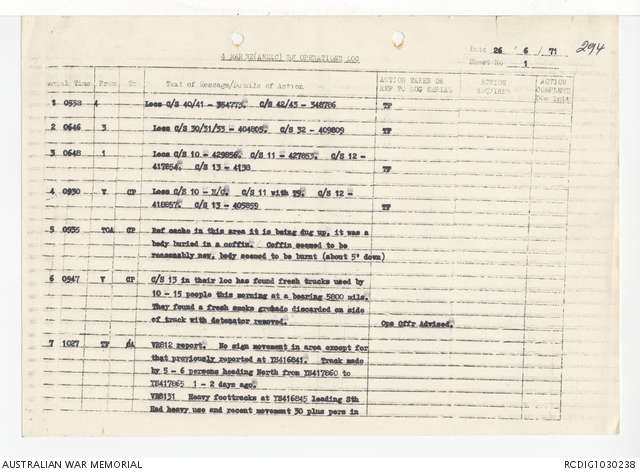 Date 26 / 6 / 71
294
4 RAR/NZ(ANZAC) BN OPERATIONS LOG
Sheet No 1
Serial Time From To Text of Message/Details of Action ACTION TAKEN OR REF TO LOG SERIAL ACTION REQUIRED ACTION COMPLETE
1 0558 4 Locs C/S 40/41 - 354775. C/S 42/43 - 348786 TF
2 0646 3 Locs C/S 30/31/33 - 404805. C/S 32 - 409809 TF
3 0648 1 Locs C/S 10 - 429856. C/S 11 - 427853. C/S 12 -
417854. C/S 13 - 4138 TF
4 0930 V CP Locs C/S 10 - N/C. C/S 11 with T9. C/S 12 -
418857. C/S 13 - 405859 TF
5 0935 TOA CP Ref cache in this area it is being dug up, it was a
body buried in a coffin. Coffin seemed to be
reasonably new, body seemed to be burnt (about 5' down)
6 0947 V CP C/S 13 in their loc has found fresh tracks used by
10 - 15 people this morning at a bearing 5800 mils.
They found a fresh smoke grenade discarded on side
of track with detonator removed. Ops Offr Advised.
7 1027 TF VR812 report. No sign movement in area except for
that previously reported at YS416841. Track made
by 5 - 6 persons heading North from YS417860 to
YS417865 1 - 2 days ago.
VR8131 Heavy foottracks at YS416845 leading Sth
Had heavy use and recent movement 30 plus pers in
AUSTRALIAN WAR MEMORIAL
RCDIG1030238